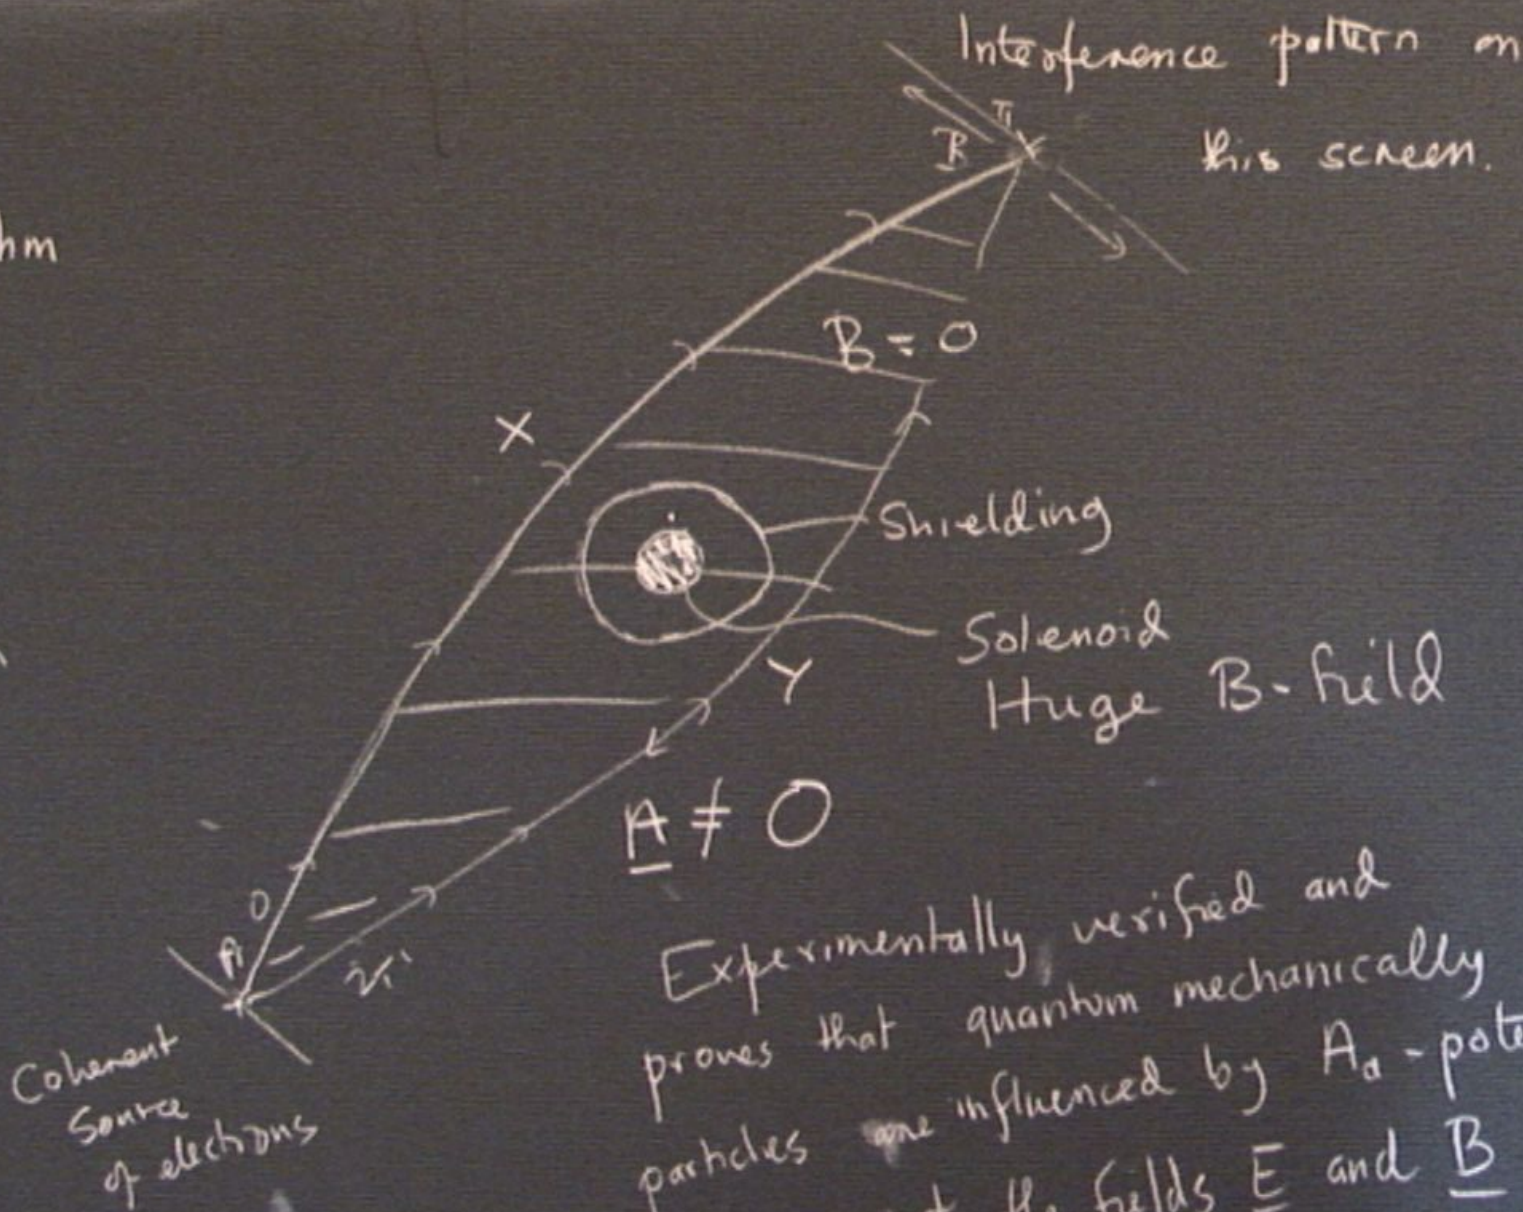 Interference pattern on
this screen.
hm
R
B = 0
X
Shielding
Solenoid
Huge B-field
Y
A ≠ 0
Coherent
Source
of electrons
Experimentally verified and
proves that quantum mechanically
particles are influenced by Aa - pote
the fields E and B